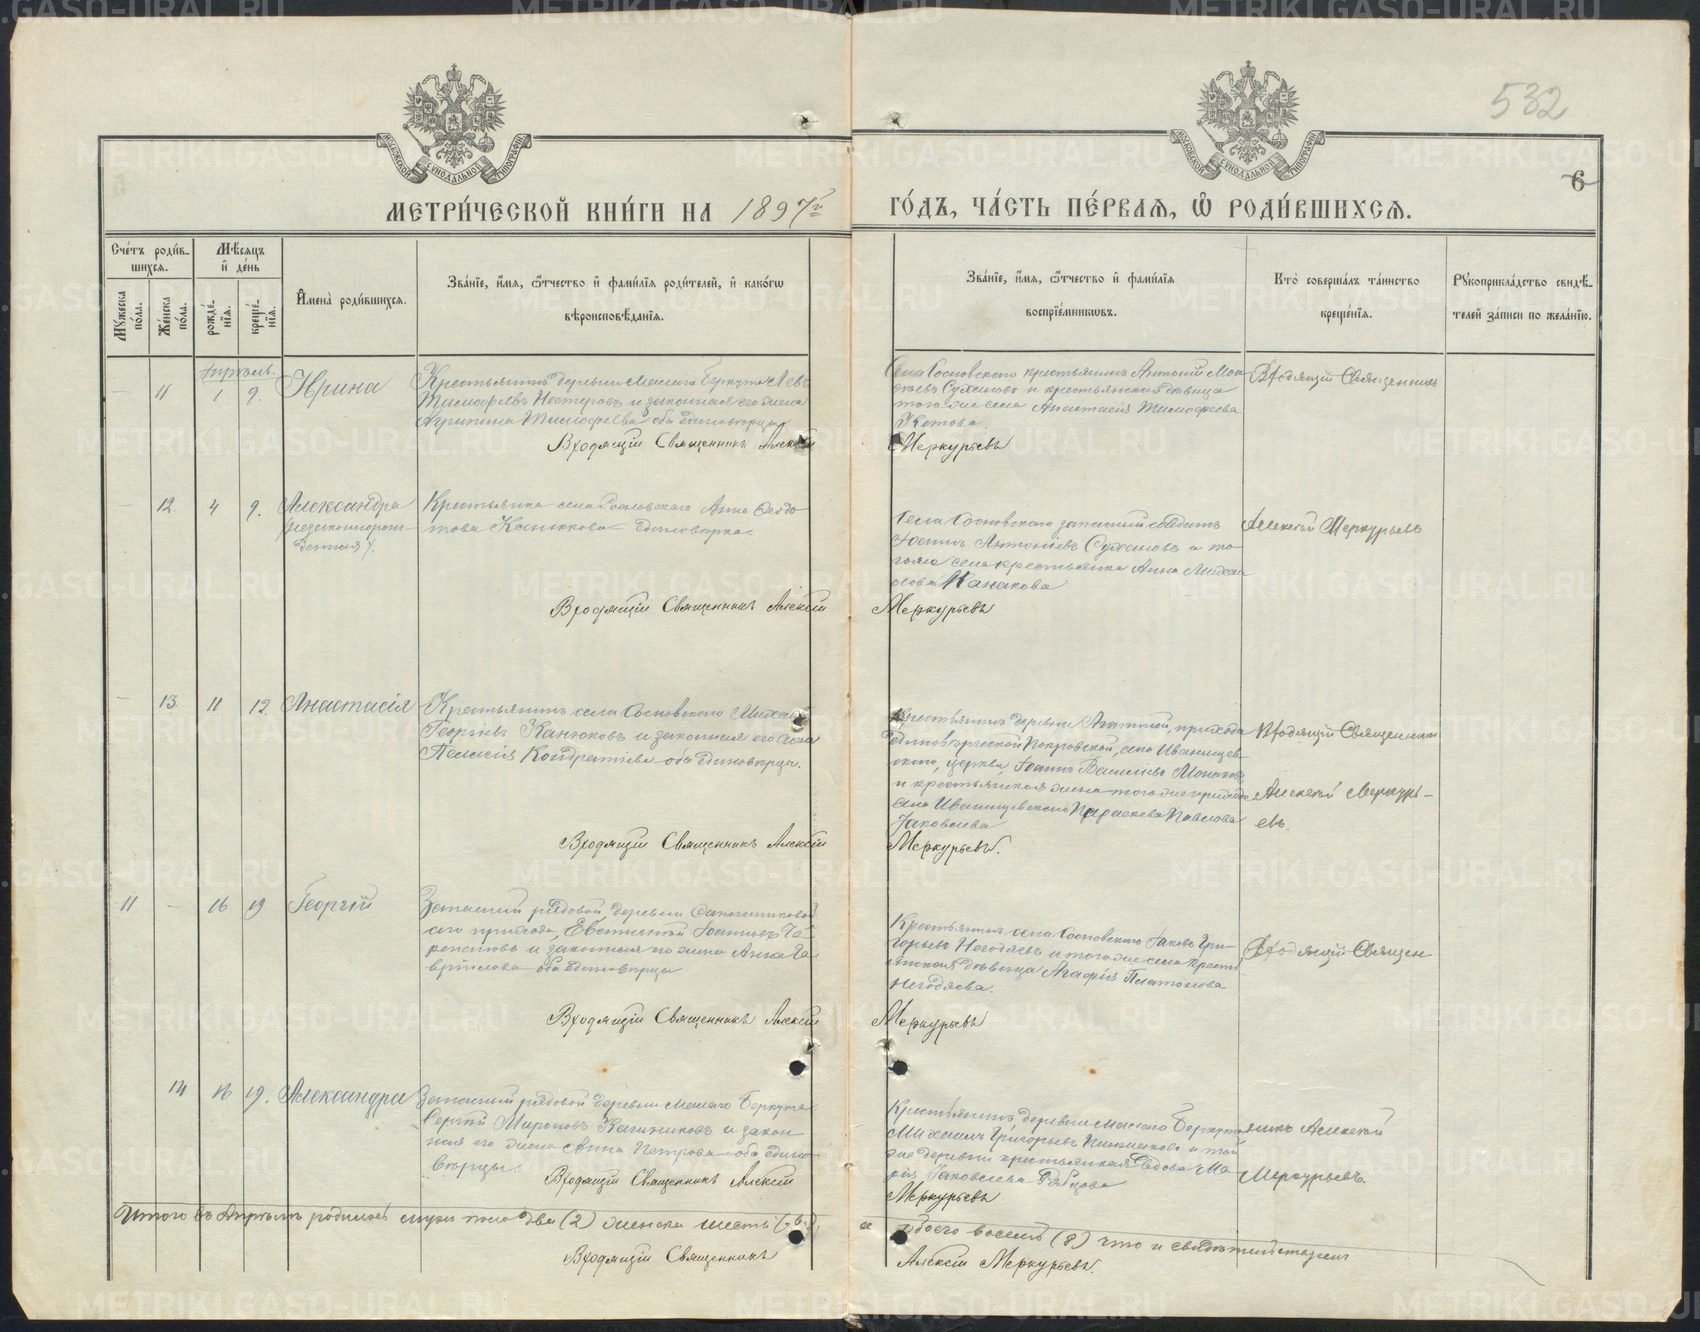 532
6
МЕТРИ́ЧЕСКОЙ КНИ́ГИ НА 1897 г.
ГО́ДЪ, ЧА́СТЬ ПЕ́РВАЯ, Ѽ РОДИ́ВШИХСЯ.
Сче́тъ роди́в-
шихся.
Мѣ́сяцъ
и де́нь
Мꙋ́жеска
по́ла.
Же́нска
по́ла.
рожде́-
нія.
креще́-
нія.
Имена̀ роди́вшихся.
Зва́ніе, и́мя, ѻ́тчество и фами́лія роди́телей, и како́гѡ
вѣроисповѣ́данія.
Зва́ніе, и́мя, ѻ́тчество и фами́лія
воспріе́мникѡвъ.
Кто̀ соверша́лъ та́инство
креще́нія.
Рꙋкоприкла́дство свидѣ́-
телей за́писи по жела́нію.
Апрѣль.
11 1 9. Ирина
Крестьянинъ деревни Малаго Беркута Левъ
Тимофеевъ Нестеровъ и законная его жена
Агрипина Тимофеева оба единовѣрцы
Входящій Священникъ Алексій
Села Сосновскаго крестьянинъ Антоній
Сухановъ и крестьянская дѣвица
того же села Анастасія Тимофеева
Меркурьевъ
Входящій Священникъ
12 4 9. Александра
незаконнорож-
денная
Крестьянка села Сосновскаго Анна Ѳедо-
това Канюкова единовѣрка
Входящій Священникъ Алексій
Села Сосновскаго запасный солдатъ
Іоаннъ Антоніевъ Сухановъ и то-
гоже села крестьянка Анна
Меркурьевъ
Алексій Меркурьевъ
13. 11 12. Анастасія
Крестьянинъ села Сосновскаго Михаилъ
Георгіевъ Канюковъ и законная его жена
Пелагія Кондратіева оба единовѣрцы.
Входящій Священникъ Алексій
Крестьянинъ деревни прихода
единовѣрческой Покровской, села Иванищев-
скаго, церкви, Іоаннъ Василіевъ
и крестьянская жена того же прихода
села Иванищевскаго Параскева Павлова
Яковлева
Меркурьевъ.
Входящій Священникъ
Алексій Меркурь-
евъ.
11 - 16 19 Георгій
Запасный рядовой деревни Сапожниковой
сего прихода, Евстигній Іоанновъ
и законная его жена Анна Га-
врилова оба единовѣрцы
Входящій Священникъ Алексій
Крестьянинъ села Сосновскаго Іаковъ Гри-
горьевъ Негодяевъ и того же села кресть-
янская дѣвица Агафія Платонова
Негодяева.
Меркурьевъ
Входящій Священ
14 16 19. Александра
Запасный рядовой деревни Малаго Беркута
Сергій Мироновъ и закон-
ная его жена Анна Петрова оба едино-
вѣрцы.
Входящій Священникъ Алексій
Крестьянинъ деревни Малаго Беркута
Михаилъ Григорьевъ и той
же деревни крестьянская вдова Ма-
рія Іаковлева
Меркурьевъ
никъ Алексій
Меркурьевъ
Итого въ Апрѣлѣ родилось муж. пола два (2) женска шесть (6),
а обоего восемь (8) что и свидѣтельствуемъ
Входящій Священникъ
Алексій Меркурьевъ.